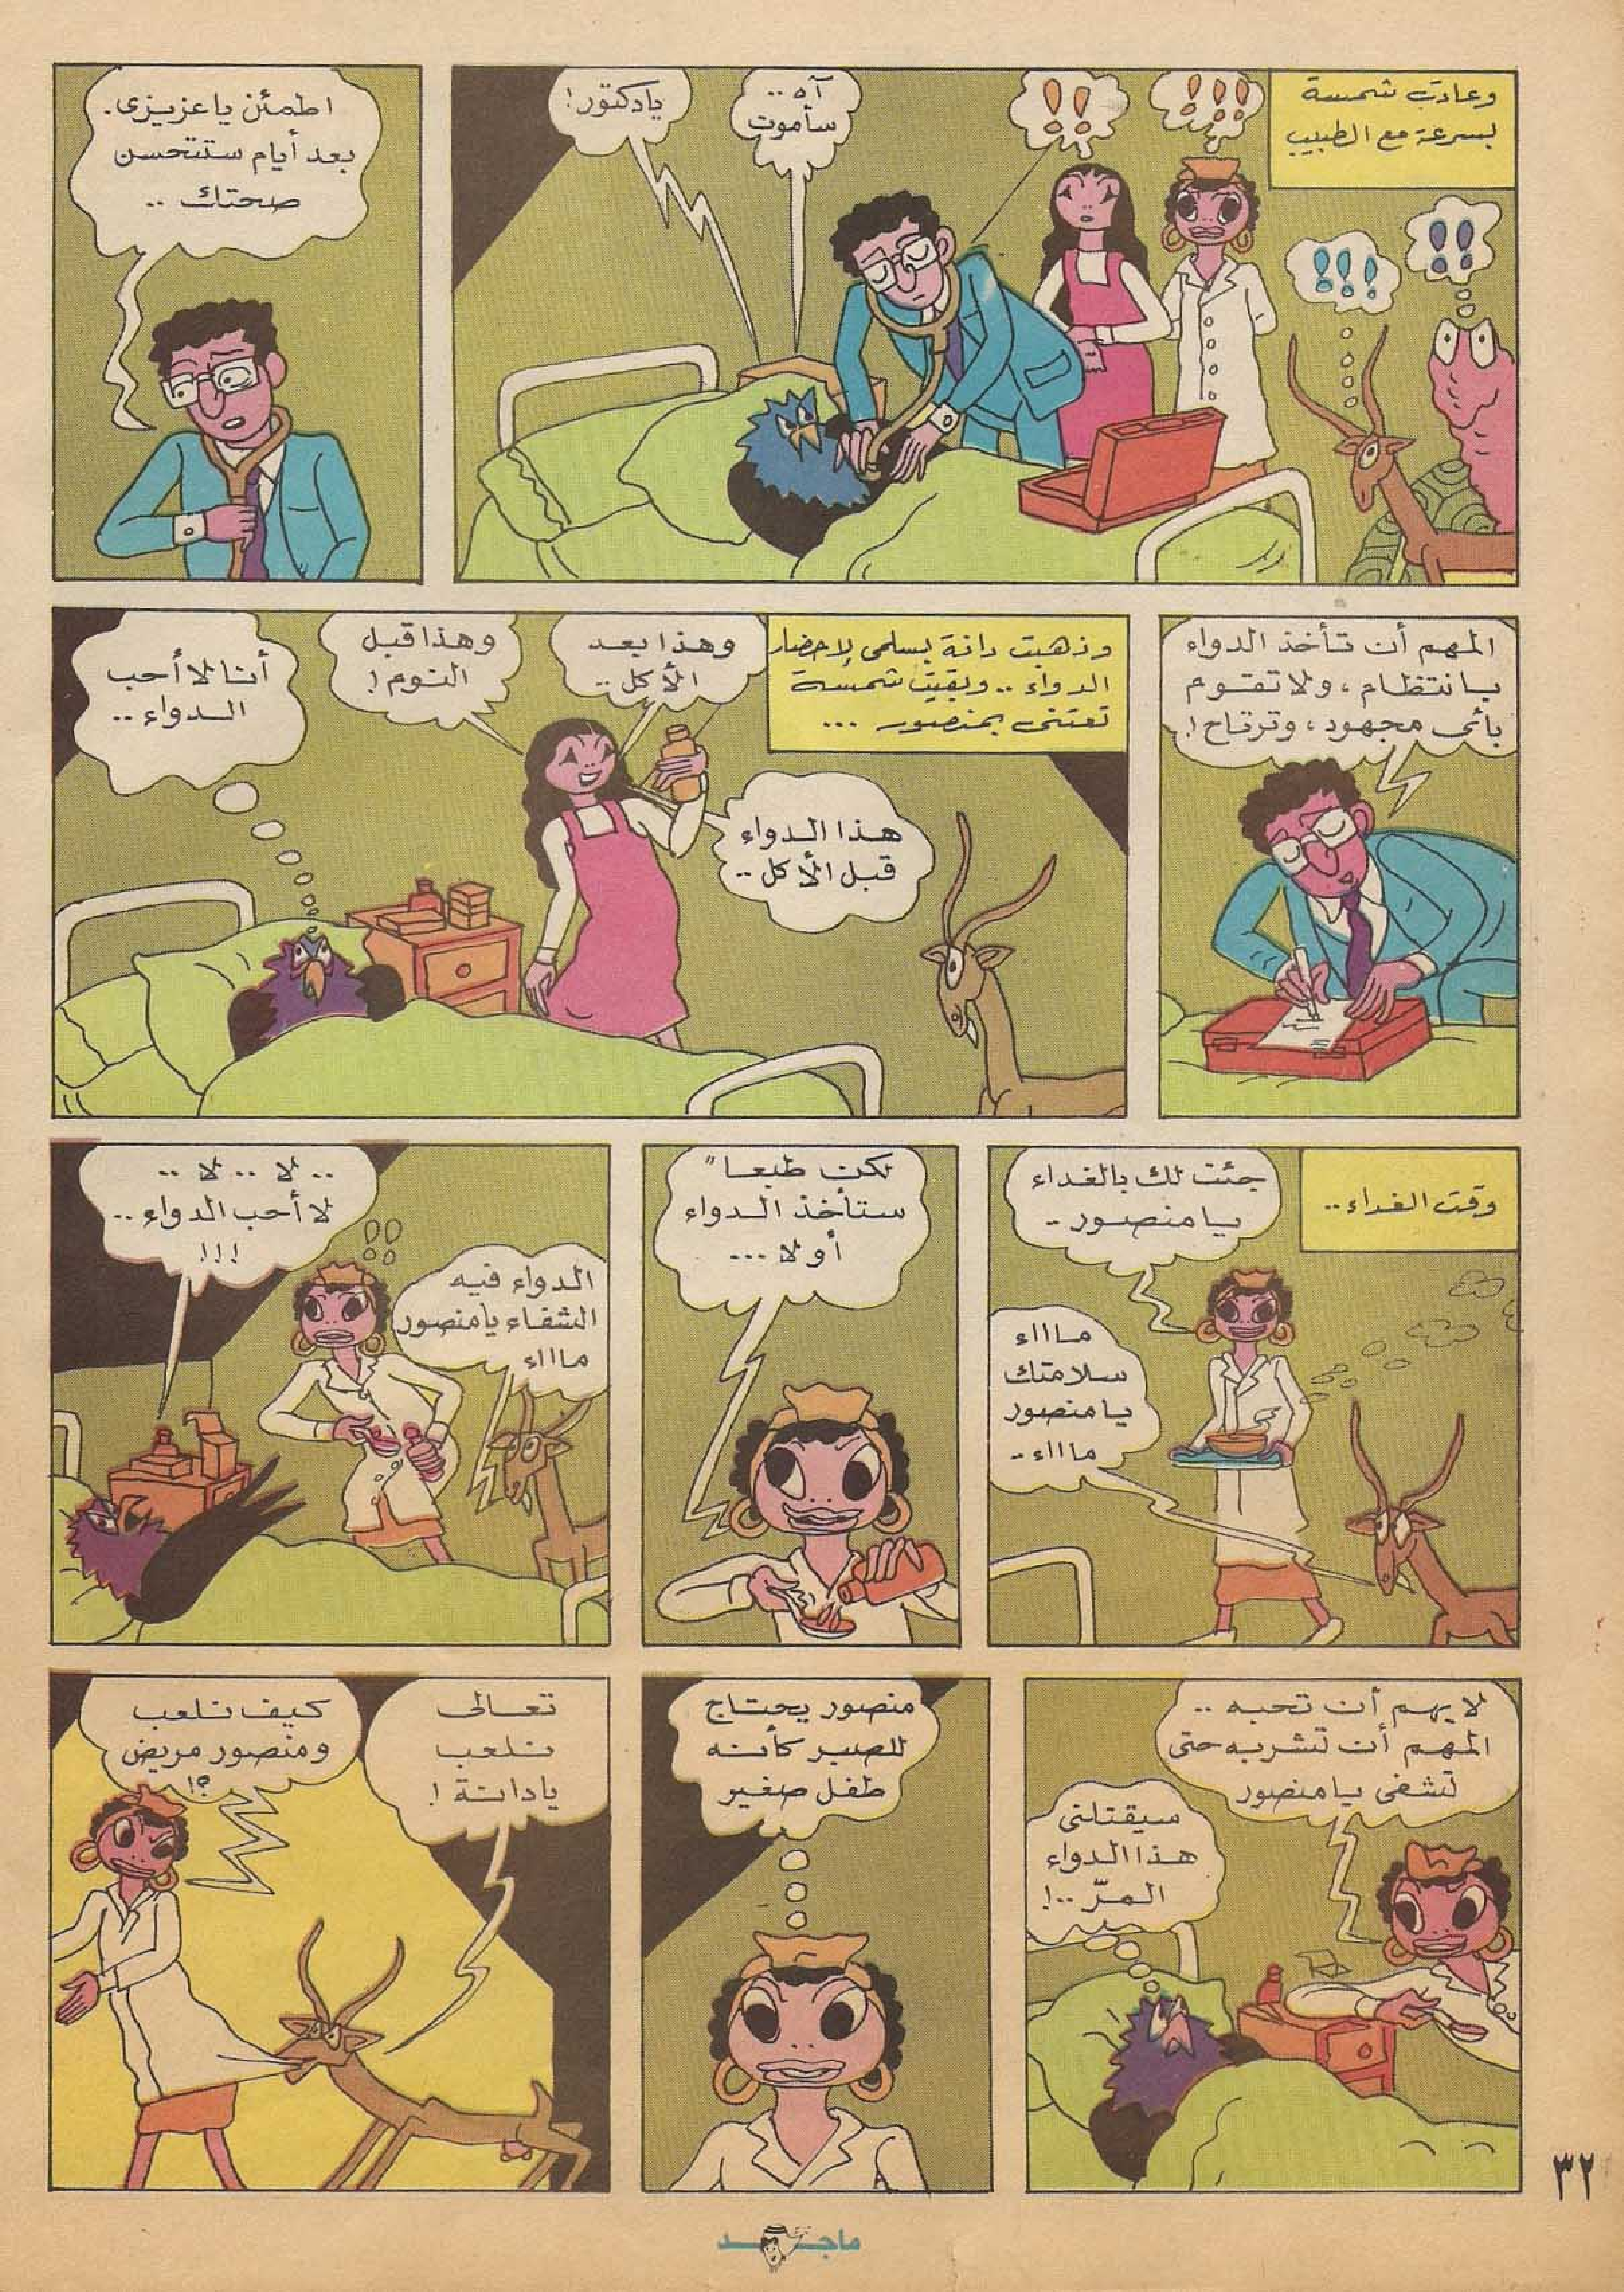 وعادت شمسة
بسرعة مع الطبيب
!!!
!!
!!
!!!
آه ..
سأموت
يادكتور!
اطمئن ياعزيزى.
بعد أيام ستتحسن
صحتك ..
المهم أن تأخذ الدواء
بانتظام ، ولا تقوم
بأى مجهود ، وترتاح !
وذهبت دانة بسلمى لإحضار
الدواء .. وبقيت شمسة
تعتنى بمنصور ...
هذا الدواء
قبل الأكل ..
وهذا بعد
الأكل ..
وهذا قبل
النوم !
أنا لا أحب
الدواء ..
وقت الغداء ..
جئت لك بالغداء
يا منصور ..
مااااء
سلامتك
يا منصور
مااااء ..
لكن طبعا"
ستأخذ الدواء
أولا ...
الدواء فيه
الشفاء يا منصور
مااااء
.. لا .. لا ..
لا أحب الدواء ..
!!!
لا يهم أن تحبه ..
المهم أن تشربه حتى
تشفى يا منصور
سيقتلنى
هذا الدواء
المرّ ..!
منصور يحتاج
للصبر كأنه
طفل صغير
تعالى
نلعب
يا دانة !
كيف نلعب
ومنصور مريض
؟!
٣٢
ماجد